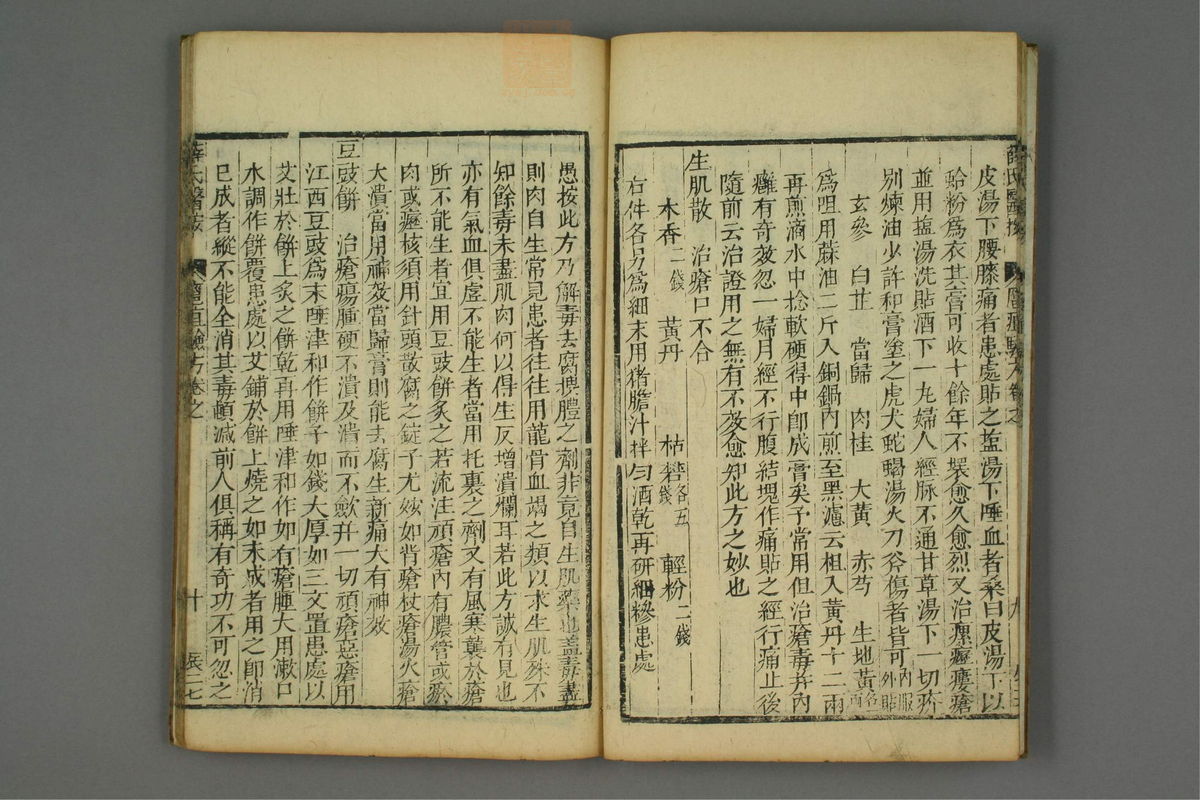 皮湯下腰膝痛者患處貼之塩湯下唾血者桑白皮湯下以
蛤粉爲衣其膏可收十餘年不壞愈久愈烈又治瘰癧癭瘡
並用塩湯洗貼酒下一九婦人經脉不通甘草湯下一切疥
別煉油少許和膏塗之虎犬蛇蝎湯火刀斧傷者皆可內服外貼
玄參　白芷　當歸　肉桂　大黃　赤芍　生地黃各一兩
爲咀用蔴油二斤入銅鍋內煎至黑濾去柤入黃丹十二兩
再煎滴水中捻軟硬得中卽成膏矣予常用但治瘡毒并內
癰有奇效忽一婦月經不行腹結塊作痛貼之經行痛止後
隨前云治證用之無有不效愈知此方之妙也
生肌散　治瘡口不合
木香二錢　黃丹　枯礬各五錢　輕粉二錢
右件各另爲細末用猪膽汁拌勻晒乾再研細糝患處
愚按此方乃解毒去腐搜膿之劑非竟自生肌藥也盖毒盡
則肉自生常見患者往往用龍骨血竭之類以求生肌殊不
知餘毒未盡肌肉何以得生反增潰爛耳若此方誠有見也
亦有氣血俱虛不能生者當用托裏之劑又有風寒襲於瘡
所不能生者宜用豆豉餅灸之若流注頑瘡內有膿管或瘀
肉或瘰核須用針頭散腐之錠子尤妙如背瘡杖瘡湯火瘡
大潰當用神效當歸膏則能去腐生新痛大有神效
豆豉餅　治瘡瘍腫硬不潰及潰而不歛并一切頑瘡惡瘡用
江西豆豉爲末唾津和作餅子如錢大厚如三文置患處以
艾壯於餅上灸之餅乾再用唾津和作如有瘡腫大用漱口
水調作餅覆患處以艾鋪於餅上燒之如未成者用之卽消
已成者縱不能全消其毒頓減前人俱稱有奇功不可忽之
薛氏醫按　十